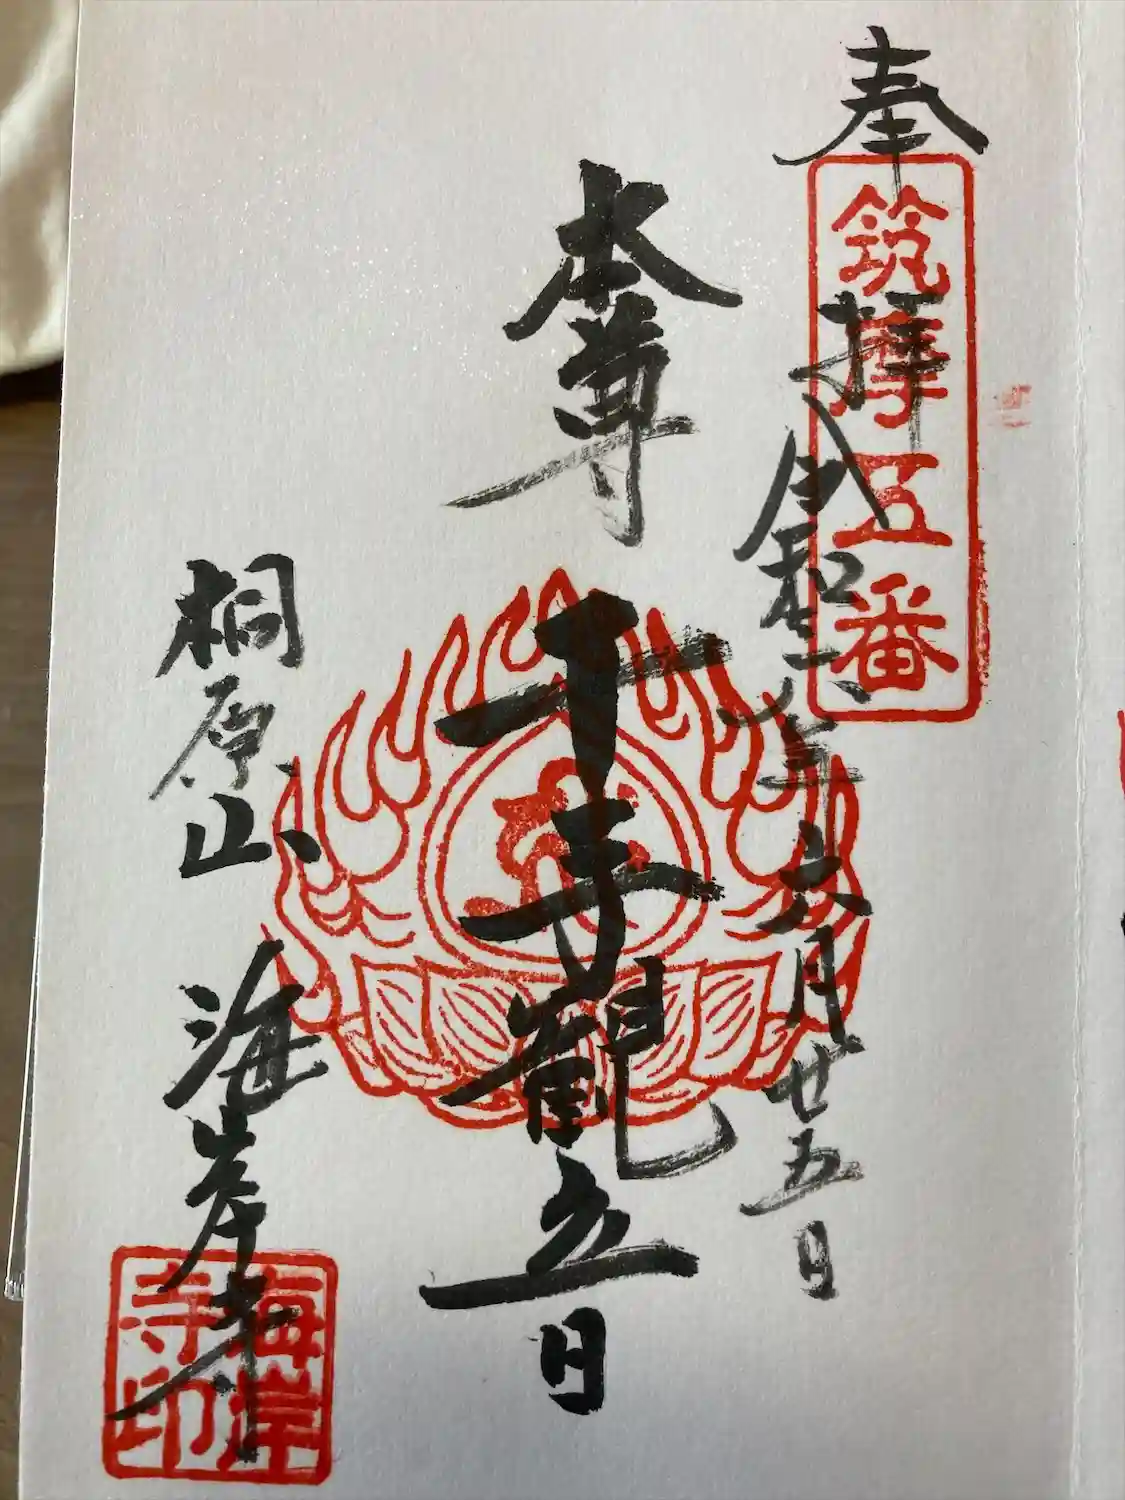 奉拝
筑摩五番
令和六年六月廿五日
本尊 千手観音
桐原山 海岸寺
海岸
寺印